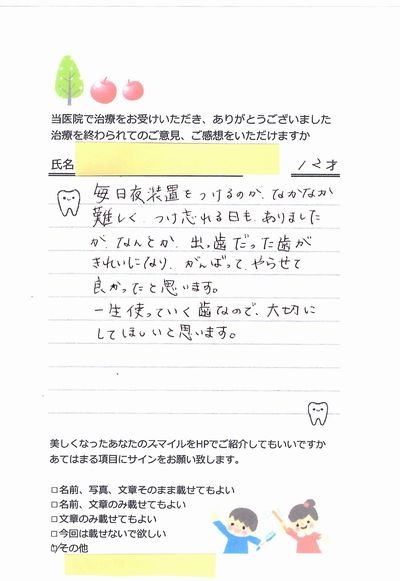 当医院で治療をお受けいただき、ありがとうございました
治療を終わられてのご意見、ご感想をいただけますか
氏名 12才
毎日夜装置をつけるのが、なかなか
難しく、つけ忘れる日も、ありました
が、なんとか、出っ歯だった歯が
きれいになり、がんばって、やらせて
良かったと思います。
一生使っていく歯なので、大切に
してほしいと思います。
美しくなったあなたのスマイルをHPでご紹介してもいいですか
あてはまる項目にサインをお願い致します。
□名前、写真、文章そのまま載せてもよい
□名前、文章のみ載せてもよい
□文章のみ載せてもよい
□今回は載せないで欲しい
□その他